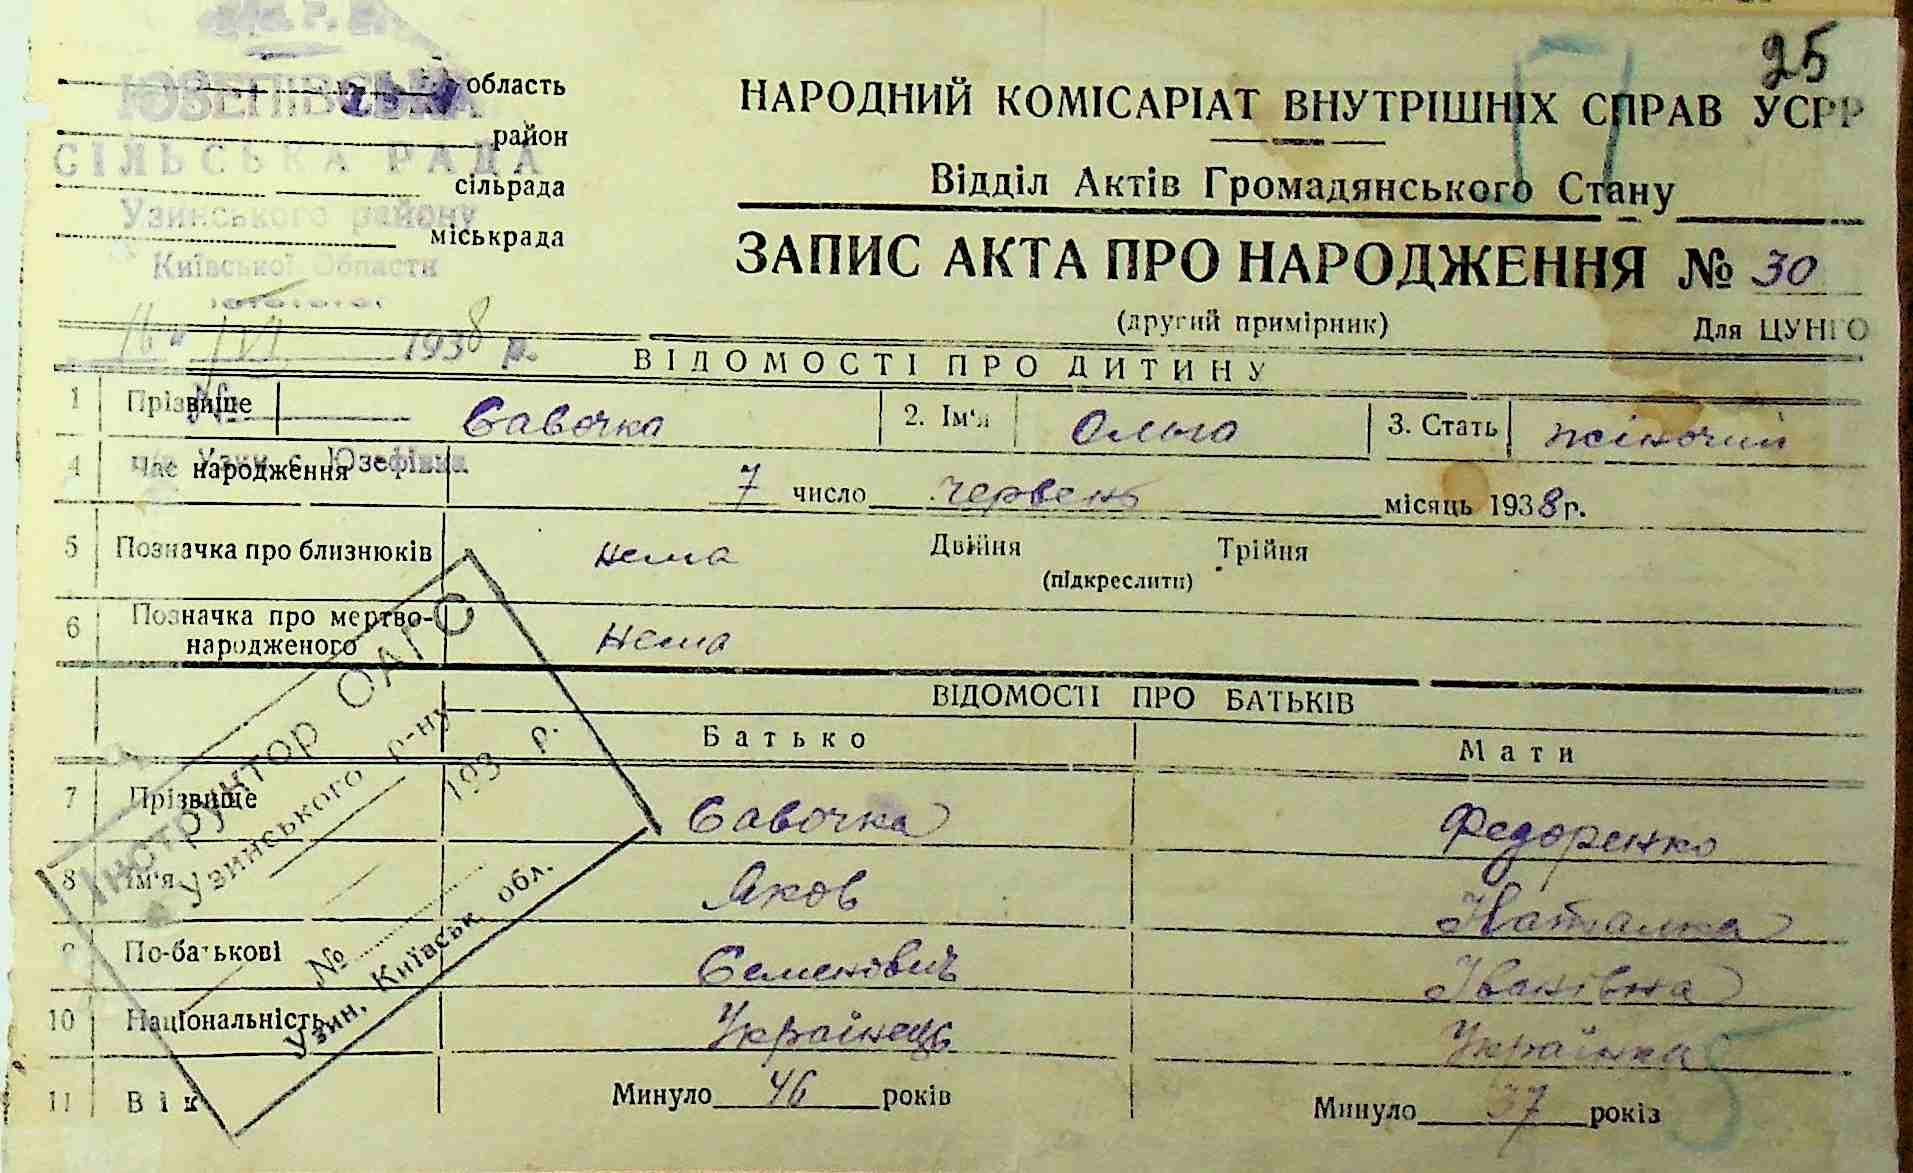 25
ЮЗЕПІВСЬКА область
район
СІЛЬСЬКА РАДА
сільрада
Узинського району
міськрада
Київської Области
16 VI 1938 р.
№
п/в Узин с. Юзефівка
НАРОДНИЙ КОМІСАРІАТ ВНУТРІШНІХ СПРАВ УСРР
Відділ Актів Громадянського Стану
ЗАПИС АКТА ПРО НАРОДЖЕННЯ № 30
(другий примірник) Для ЦУНГО
ВІДОМОСТІ ПРО ДИТИНУ
1 Прізвище Савочка 2. Ім'я Ольга 3. Стать жіночий
4 Час народження 7 число червень місяць 1938 р.
5 Позначка про близнюків нема Двійня Трійня
(підкреслити)
6 Позначка про мертво-
народженого нема
ВІДОМОСТІ ПРО БАТЬКІВ
Батько Мати
7 Прізвище Савочка Федоренко
8 Ім'я Яков Наталка
9 По-батькові Семенович Іванівна
10 Національність Українець Українка
11 Вік Минуло 46 років Минуло 37 років
Інструктор ОАГС
Узинського р-ну
193 р.
№
Узин, Київськ обл.
5